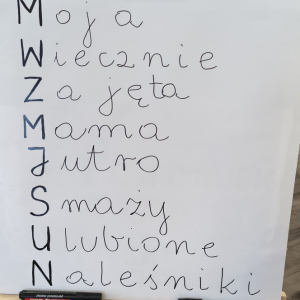 Moja
Wiecznie
Zajęta
Mama
Jutro
Smaży
Ulubione
Naleśniki